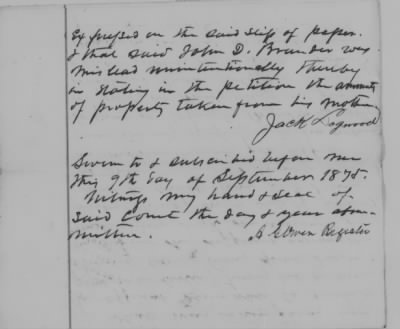 Expressed on the said slip of paper.
& that said John D. Brander was
mislead unintentionally thereby
in stating in the petition the amounts
of property taken from his mother
Jack Logwood
Sworn to & subscribed before me
this 9th day of September 1875.
Witness my hand & seal of
said Court the day & year above
written.
Owen Register